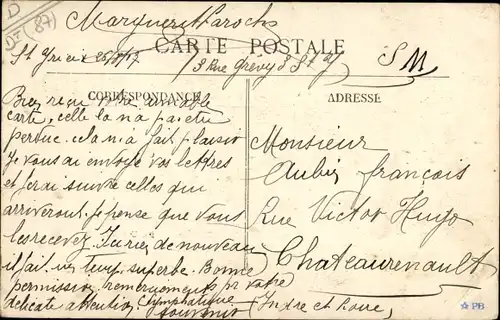 D
Dt (87)
Marguerit Laroche
St Yrieix 26/8/17
3 Rue Grevy à St Y
CARTE POSTALE
SM
CORRESPONDANCE
Bien reçu votre aimable
carte, celle la n'a pas été
perdue. cela m'a fait plaisir
Je vous ai envoyé vos lettres
et ferai suivre celles qui
arriveront. je pense que vous
les recevez. de nouveau
il fait un temps superbe. Bonne
permission, remerciements pr votre
délicate attention. Sympathique
souvenir
ADRESSE
Monsieur
Aubin françois
Rue Victor Hugo
Chateaurenault
(Indre et Loire)
PB